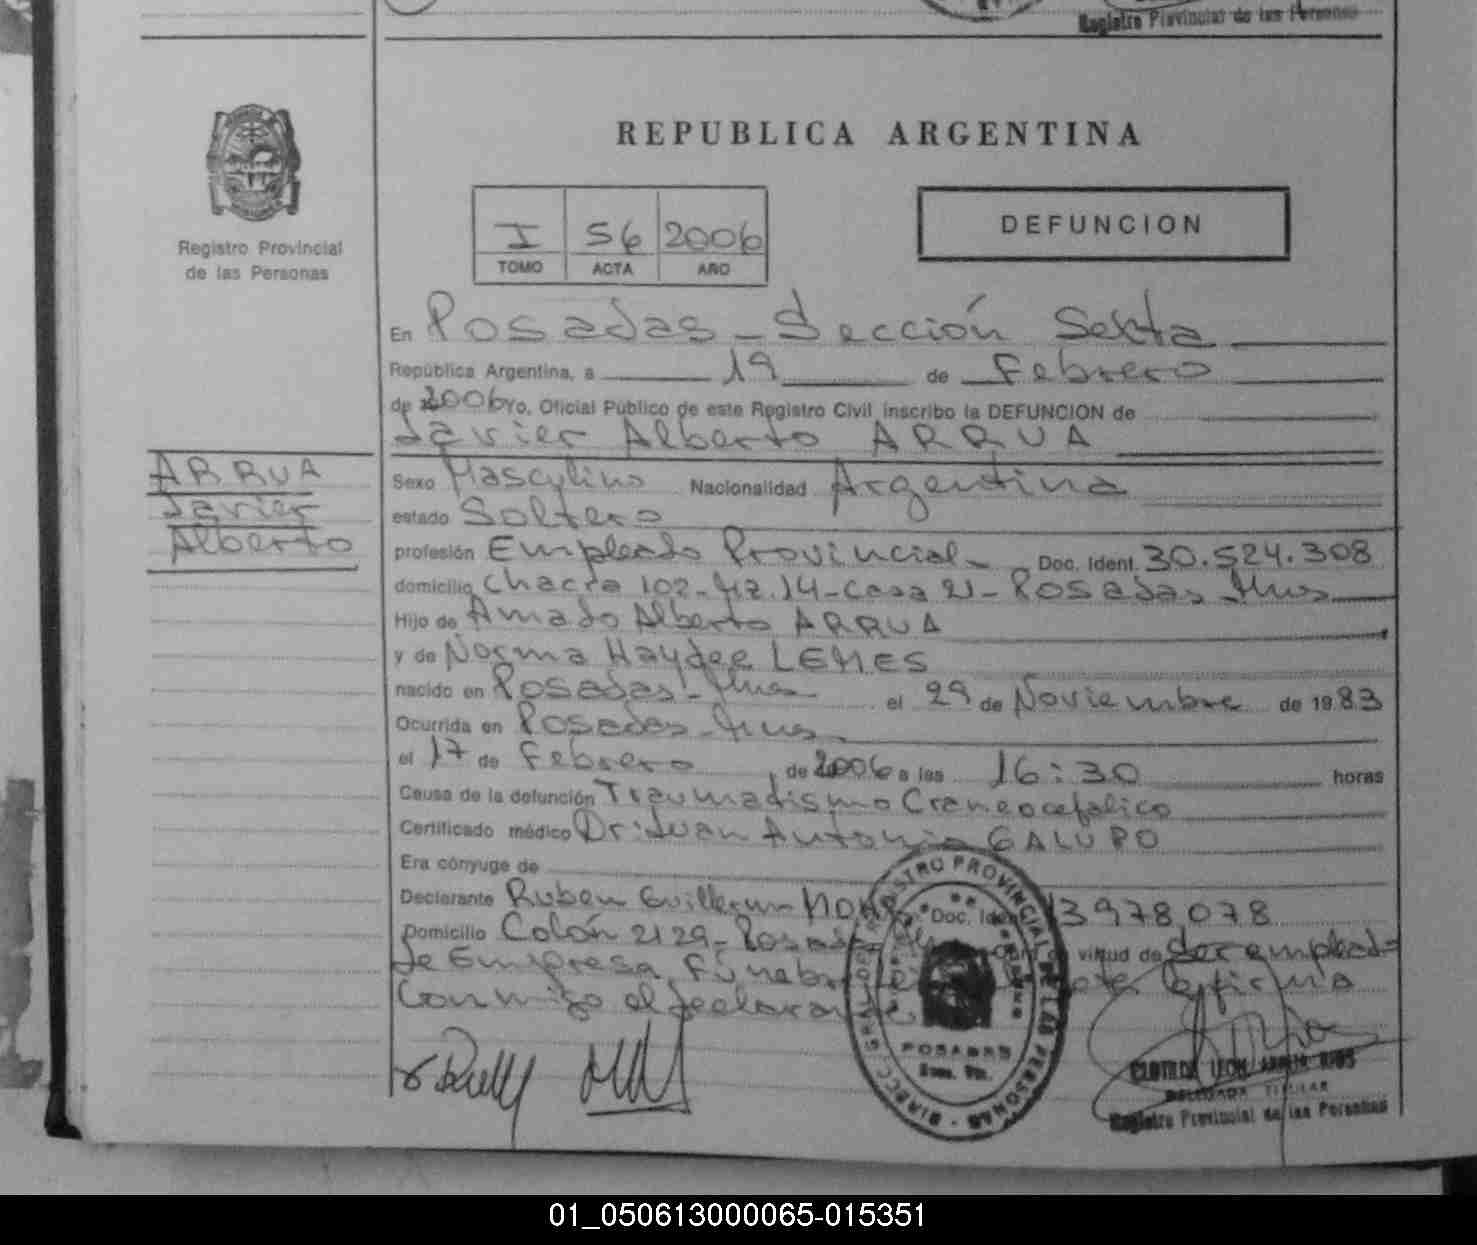 Registro Provincial de las Personas
REPUBLICA ARGENTINA
Registro Provincial
de las Personas
I 56 2006
TOMO ACTA AÑO
DEFUNCION
En Posadas - Sección Sexta
República Argentina, a 19 de Febrero
de 2006 Yo, Oficial Público de este Registro Civil inscribo la DEFUNCION de
Javier Alberto ARRUA
ARRUA
Javier
Alberto
Sexo Masculino Nacionalidad Argentina
estado Soltero
profesión Empleado Provincial - Doc. Ident. 30.524.308
domicilio Chacra 102 - Mz. 14 - Casa 21 - Posadas Mnes
Hijo de Amado Alberto ARRUA
y de Norma Haydee LEMES
nacido en Posadas - Mnes el 29 de Noviembre de 1983
Ocurrida en Posadas - Mnes
el 17 de Febrero de 2006 a las 16:30 horas
Causa de la defunción Traumatismo Craneocefalico
Certificado médico Dr: Juan Antonio GALUPO
Era cónyuge de
Declarante Ruben Guillermo Doc. Ident. 13978078
Domicilio Colón 2129 - Posadas virtud de Ser empleado
de Empresa Fúnebre firma
Conmigo el declarante
REGISTRO PROVINCIAL DE LAS PERSONAS
POSADAS
DELEGADA TITULAR
Registro Provincial de las Personas
01_050613000065-015351